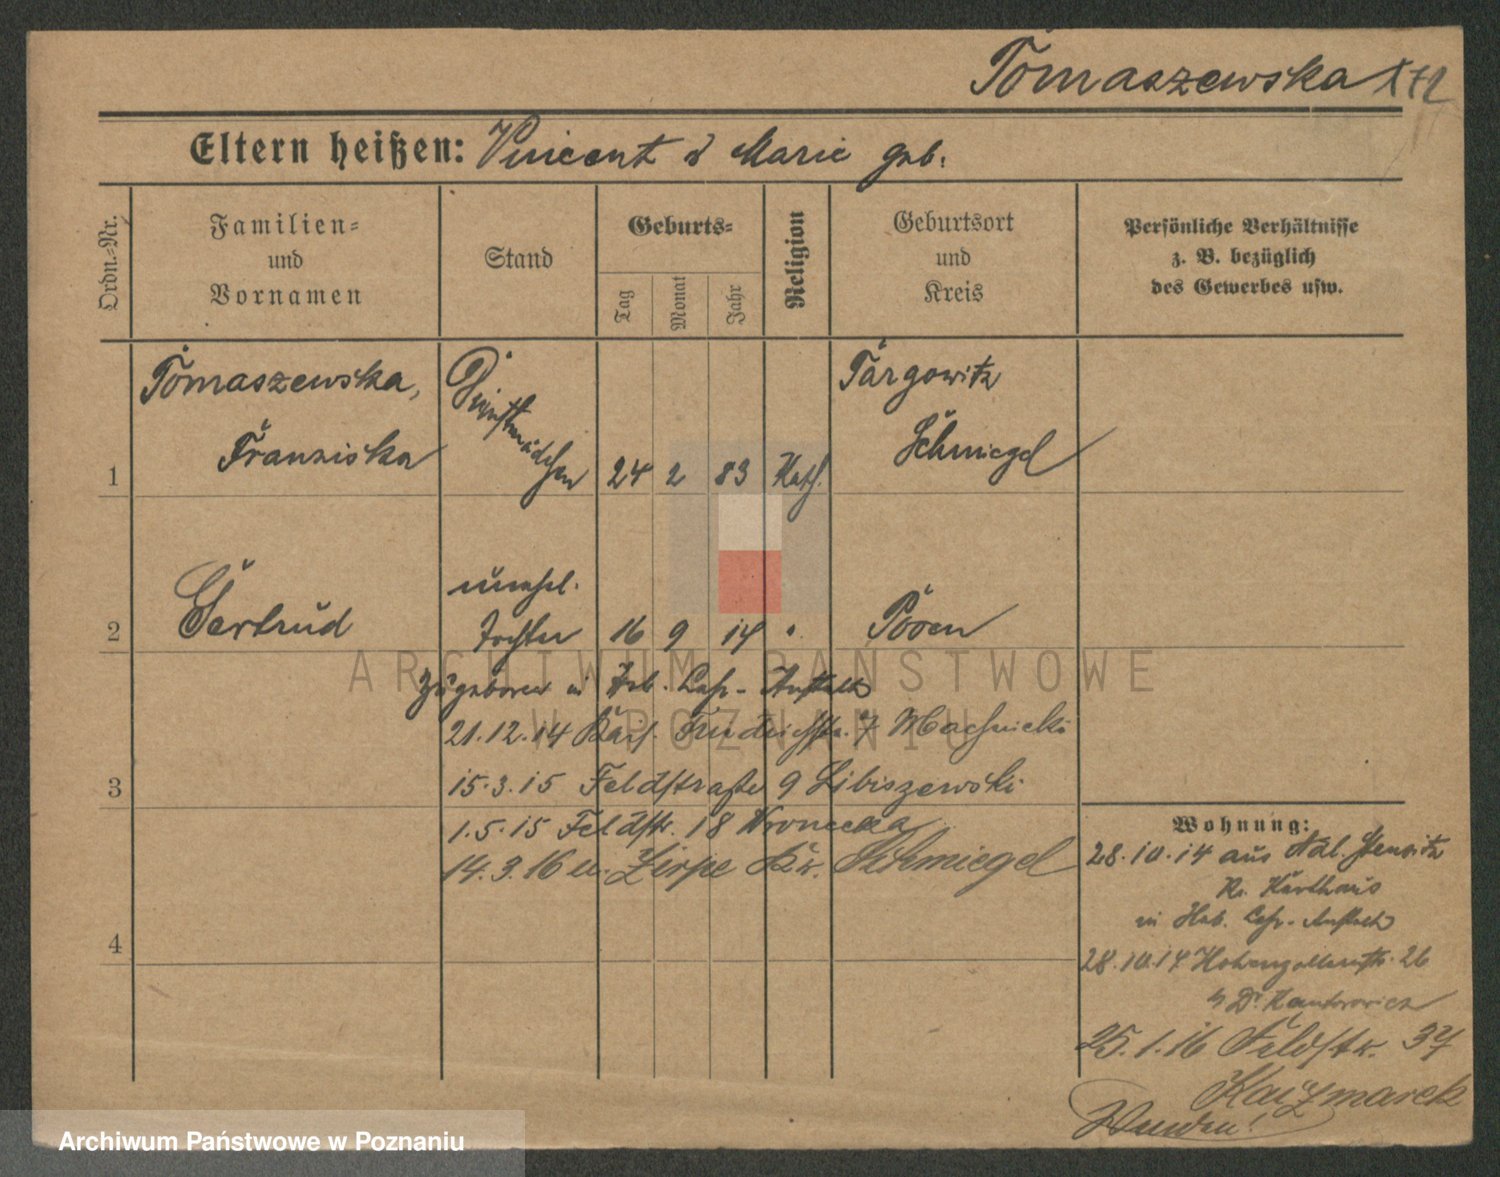 Tomaszewska
Eltern heißen: Vincent & Marie geb.
Ordn.-Nr.
Familien-
und
Vornamen
Stand
Geburts-
Tag
Monat
Jahr
Religion
Geburtsort
und
Kreis
Persönliche Verhältnisse
z. B. bezüglich
des Gewerbes usw.
Tomaszewska,
Franziska
Dienstmädchen
1
24 2 83 Kath.
Targowitz
Schmiegel
2
Gertrud
unehel.
Tochter
16 9 14 "
Posen
zugeboren in Heb. Lehr-Anstalt
21.12.14 Friedrichstr. 7 Machnicki
3
15.3.15 Feldstraße 9 Libiszewski
1.5.15 Feldstr. 18 Wronecka
14.3.16 n. Zirpe Kr. Schmiegel
4
Wohnung:
28.10.14 aus Adl.
Kr. Karthaus
in Heb. Lehr-Anstalt
28.10.14 Hohenzollernstr. 26
b Dr. Kantorowicz
25.1.16 Feldstr. 37
Kaczmarek
Wenden!
ARCHIWUM PAŃSTWOWE
W POZNANIU
Archiwum Państwowe w Poznaniu